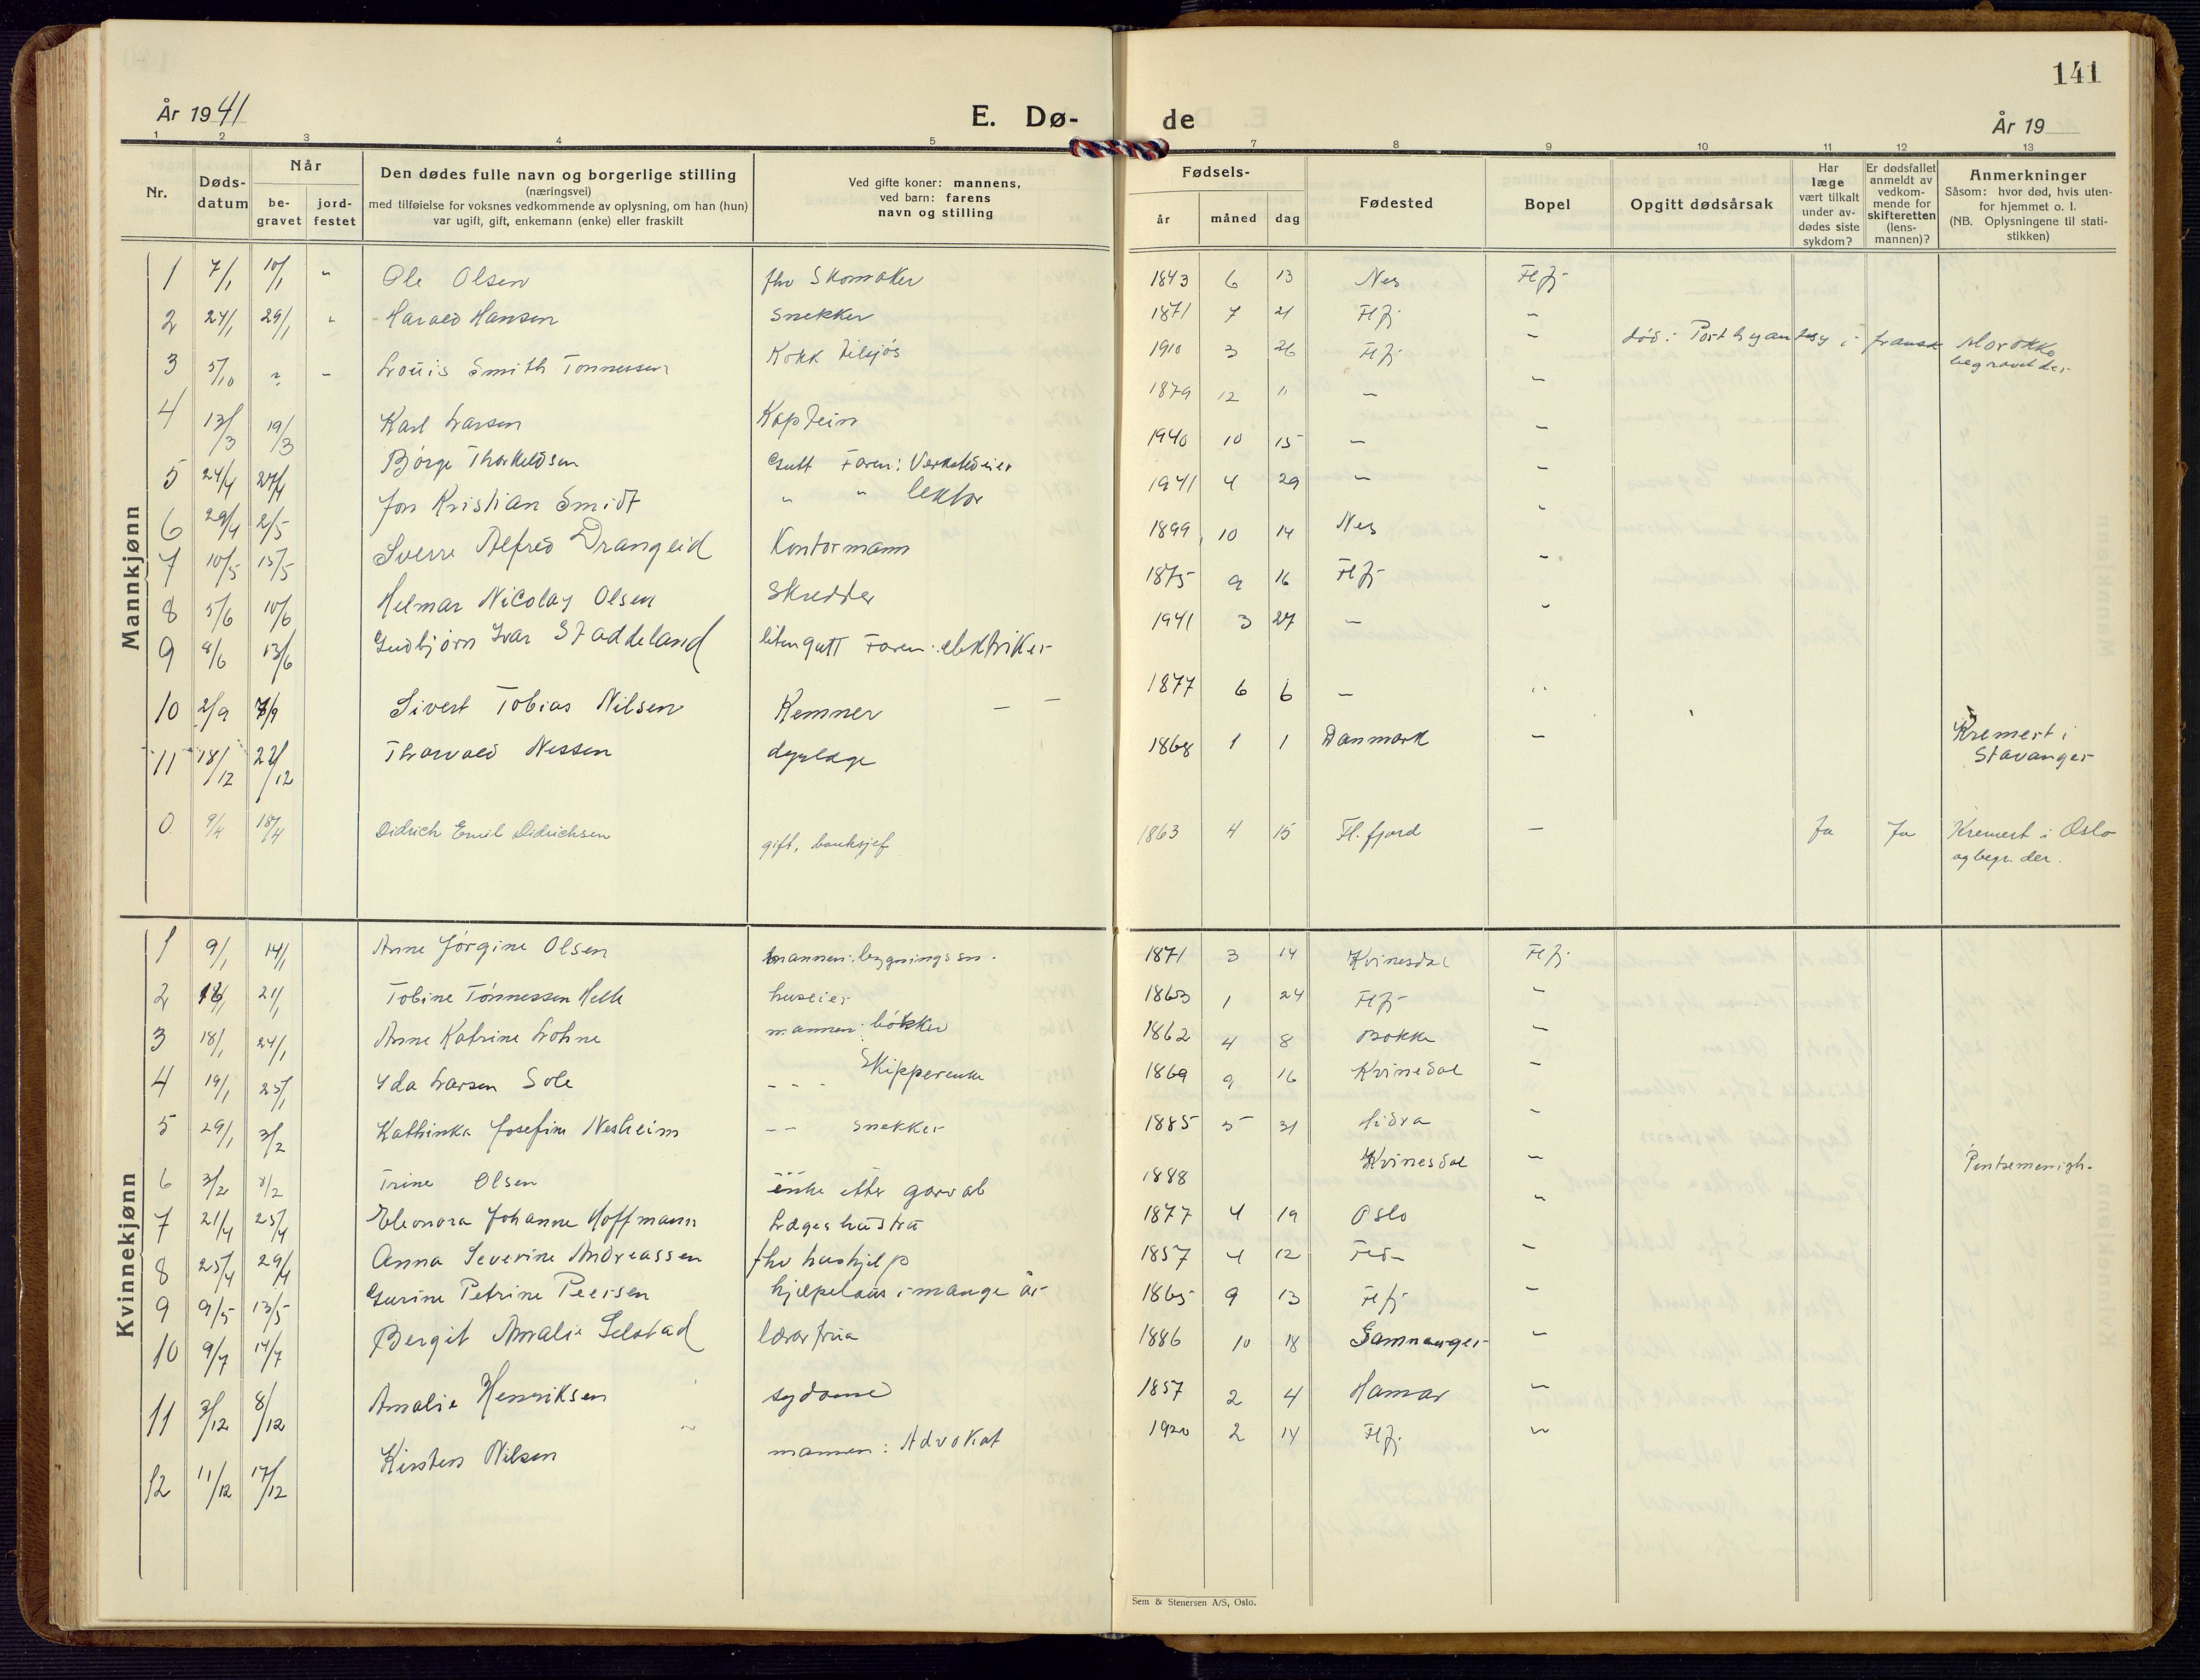 141
År 1941
E. Dø-
de
År 19
1 2 3 4 5 7 8 9 10 11 12 13
Nr.
Døds-
datum
Når
be-
gravet
jord-
festet
Den dødes fulle navn og borgerlige stilling
(næringsvei)
med tilføielse for voksnes vedkommende av oplysning, om han (hun)
var ugift, gift, enkemann (enke) eller fraskilt
Ved gifte koner: mannens,
ved barn: farens
navn og stilling
Fødsels-
år måned dag
Fødested
Bopel
Opgitt dødsårsak
Har
læge
vært tilkalt
under av-
dødes siste
sykdom?
Er dødsfallet
anmeldt av
vedkom-
mende for
skifteretten
(lens-
mannen)?
Anmerkninger
Såsom: hvor død, hvis uten-
for hjemmet o. l.
(NB. Oplysningene til stati-
stikken)
Mannkjønn
1 7/1 10/1 " Ole Olsen fhv Skomaker 1843 6 13 Nes Flfj-
2 24/1 29/1 " Harald Hansen Snekker 1871 7 21 Flfj -
3 5/10 ? - Louis Smith Tønnessen Kokk tilsjøs 1910 3 26 Flfj - død i Port i fransk Marokko
begravet der
4 13/3 19/3 Karl Larsen Kaptein 1879 12 11 - -
5 24/4 27/4 Børge Thorkeldsen Gutt Faren: Verkstedeier 1940 10 15 - -
6 29/4 2/5 Jon Kristian Smidt " " lektor 1941 4 29 - -
7 10/5 15/5 Sverre Alfred Drangeid Kontormann 1899 10 14 Nes "
8 5/6 10/6 Helmar Nicolay Olsen Skredder 1875 9 16 Flfj -
9 8/6 13/6 Gudbjørn Ivar Staddeland liten gutt Faren: elektriker 1941 3 27 - "
10 2/9 7/9 Sivert Tobias Nilsen Kemner - - 1877 6 6 - "
11 18/12 22/12 Thorvald Nessen dyrlæge 1868 1 1 Danmark - Kremert i
Stavanger
0 9/4 18/4 Didrich Emil Didrichsen gift, banksjef 1863 4 15 Fl.fjord - Ja Ja Kremert i Oslo
og begr. der.
Kvinnekjønn
1 9/1 14/1 Anne Jørgine Olsen mannen: bygningssn. 1871 3 14 Kvinesdal Flfj.
2 18/1 21/1 Tobine Tønnessen Helle huseier 1863 1 24 Flfj- -
3 18/1 24/1 Anne Katrine Lohne mannen: bøkker 1862 4 8 Bakke -
4 19/1 25/1 Ida Larsen Sole - - - Skipperenke 1869 9 16 Kvinesdal -
5 29/1 3/2 Kathinka Josefine Nesheim - - snekker 1885 5 31 Hidra -
6 3/2 8/2 Trine Olsen enke etter garv arb 1888 Kvinesdal - Pinsemenigh.
7 21/4 25/4 Eleonora Johanne Hoffmann Lægeshustru 1877 4 19 Oslo "
8 25/4 29/4 Anna Severine Andreassen fhv hushjelp 1857 4 12 Feda -
9 9/5 13/5 Gurine Petrine Peersen hjelpelaus i mange år 1865 9 13 Flfj -
10 9/7 14/7 Bergit Amalie Selstad lærerfrue 1886 10 18 Samnanger -
11 3/12 8/12 Amalie Henriksen sydame 1857 2 4 Hamar -
12 11/12 17/12 Kirsten Nilsen mannen: Advokat 1920 2 14 Flfj. "
Sem & Stenersen A/S, Oslo.